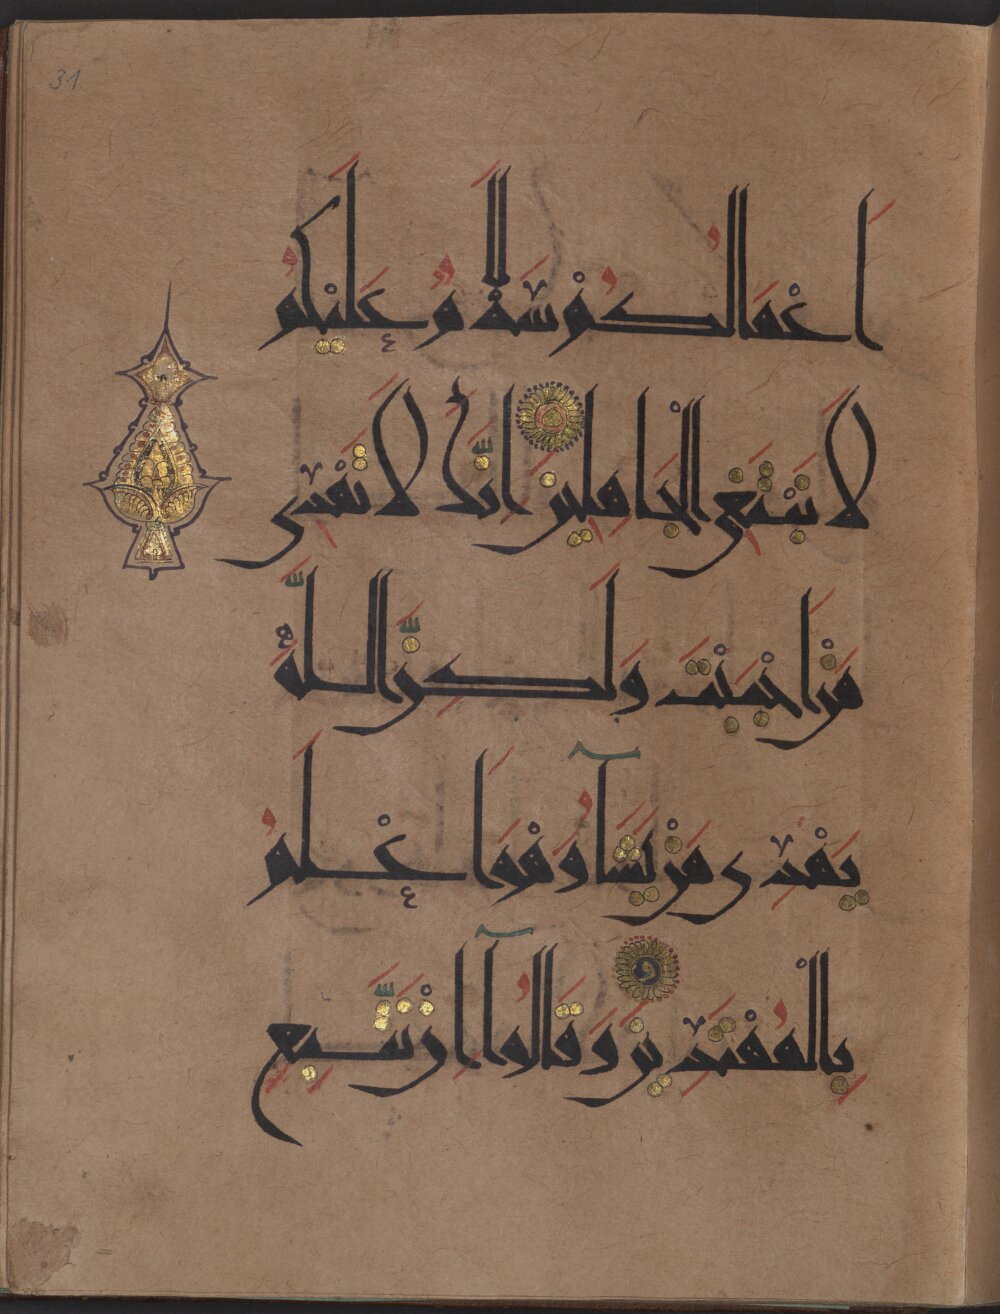 31
اَعْمَالُكُمْ سَلَٰمٌ عَلَيْكُمُ
لَا نَبْتَغِي الْجَاهِلِينَ اِنَّكَ لَا تَهْدِي
مَنْ اَحْبَبْتَ وَلَكِنَّ اللَّهَ
يَهْدِي مَنْ يَشَآءُ وَهُوَ اَعْلَمُ
بِالْمُهْتَدِينَ وَقَالُوٓا اِنْ نَتَّبِعِ